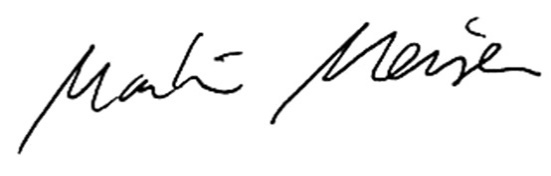 Martin Meisen